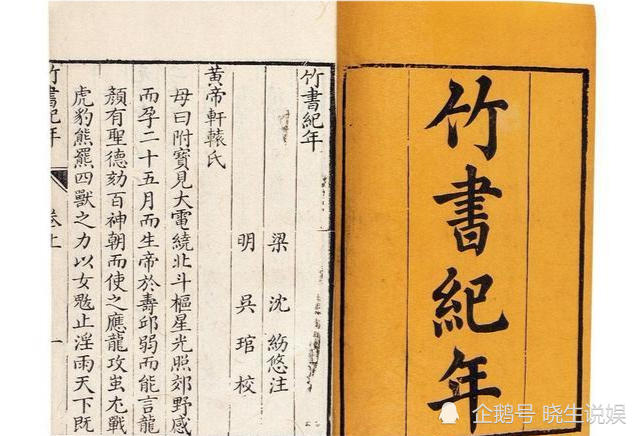 竹書紀年
竹書紀年
梁 沈 注
明 吳 琯 校
黄帝軒轅氏
母曰附寶見大電繞北斗樞星光照郊野感
而孕二十五月而生帝於壽邱弱而能言龍
顏有聖德劾百神朝而使之應龍攻蚩尤戰
虎豹熊羆四獸之力以女魃止淫雨天下既
竹書紀年 卷上 一
企鹅号 晓生说娱